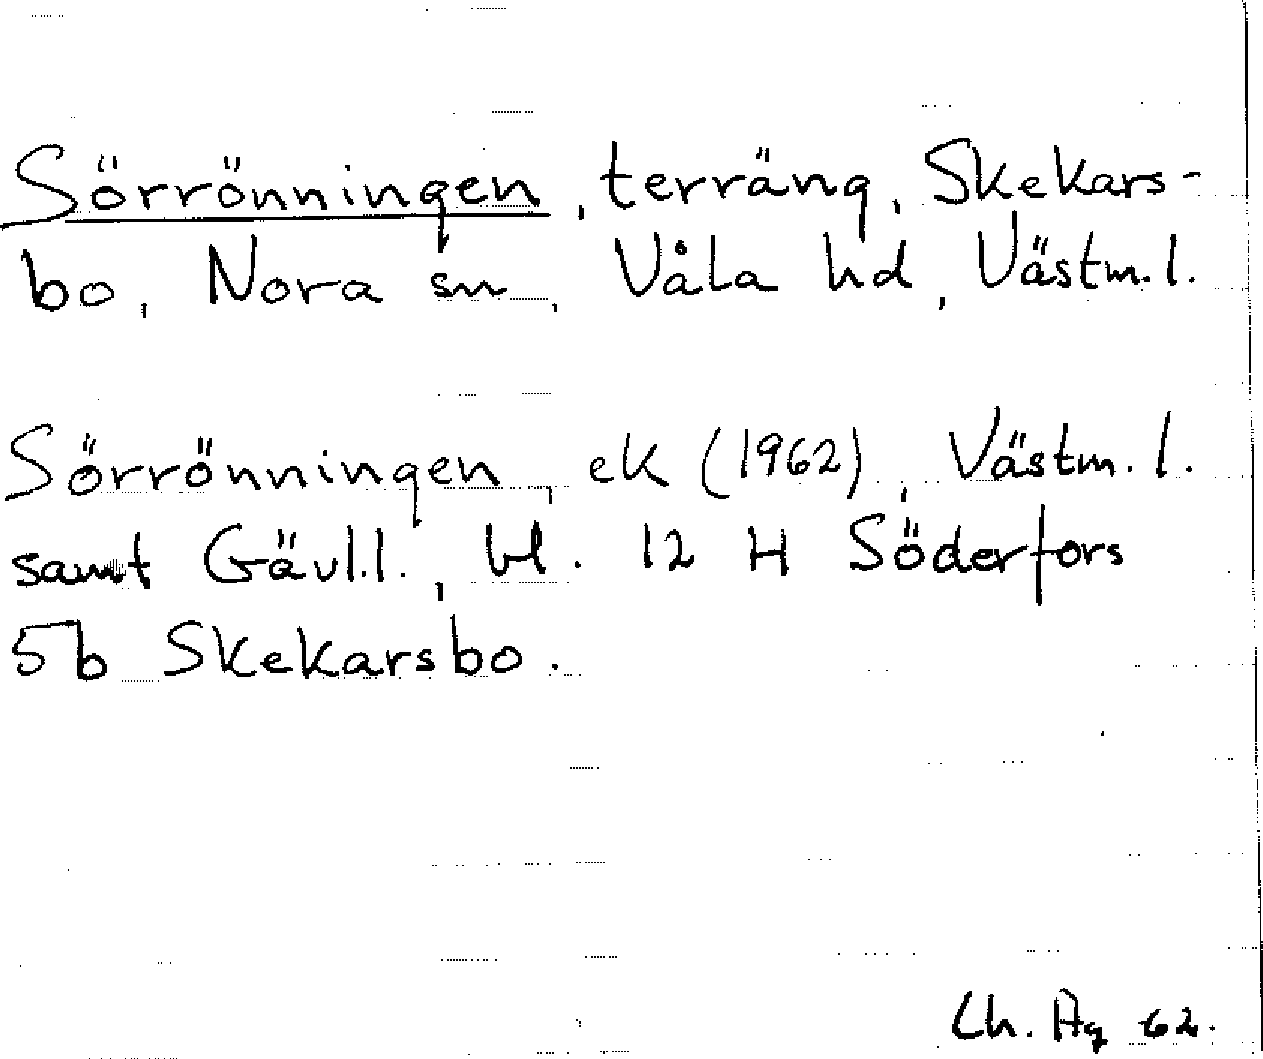 Sörrönningen, terräng, Skekars-
bo, Nora sn, Våla hd, Västm.l.
Sörrönningen, ek (1962), Västm.l.
samt Gävl.l., bl. 12 H Söderfors
5b Skekarsbo.
Ch. Ag 62.